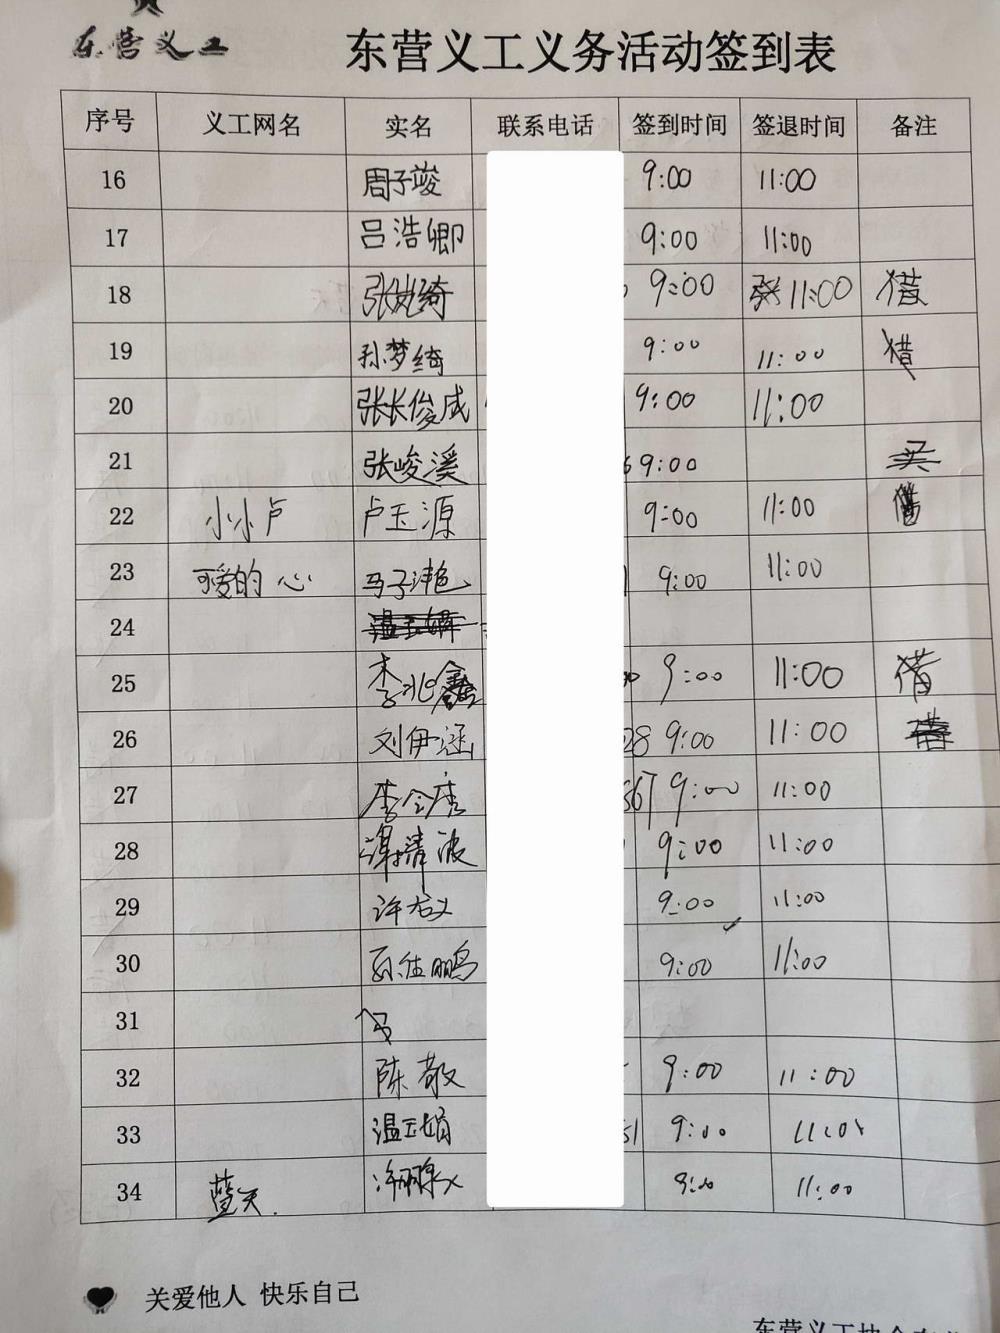 东营义工
东营义工义务活动签到表
序号 义工网名 实名 联系电话 签到时间 签退时间 备注
16 周子竣 9:00 11:00
17 吕浩卿 9:00 11:00
18 9:00 11:00 借
19 孙梦绮 9:00 11:00 借
20 张长俊成 9:00 11:00
21 张峻溪 9:00
22 小小卢 卢玉源 9:00 11:00 借
23 可爱的心 9:00 11:00
24 温玉娟
25 李兆鑫 9:00 11:00 借
26 刘伊涵 28 9:00 11:00
27 567 9:00 11:00
28 谭清波 9:00 11:00
29 9:00 11:00
30 孙佳鹏 9:00 11:00
31
32 陈敬 9:00 11:00
33 温玉娟 51 9:00 11:01
34 蓝天 9:00 11:00
关爱他人 快乐自己